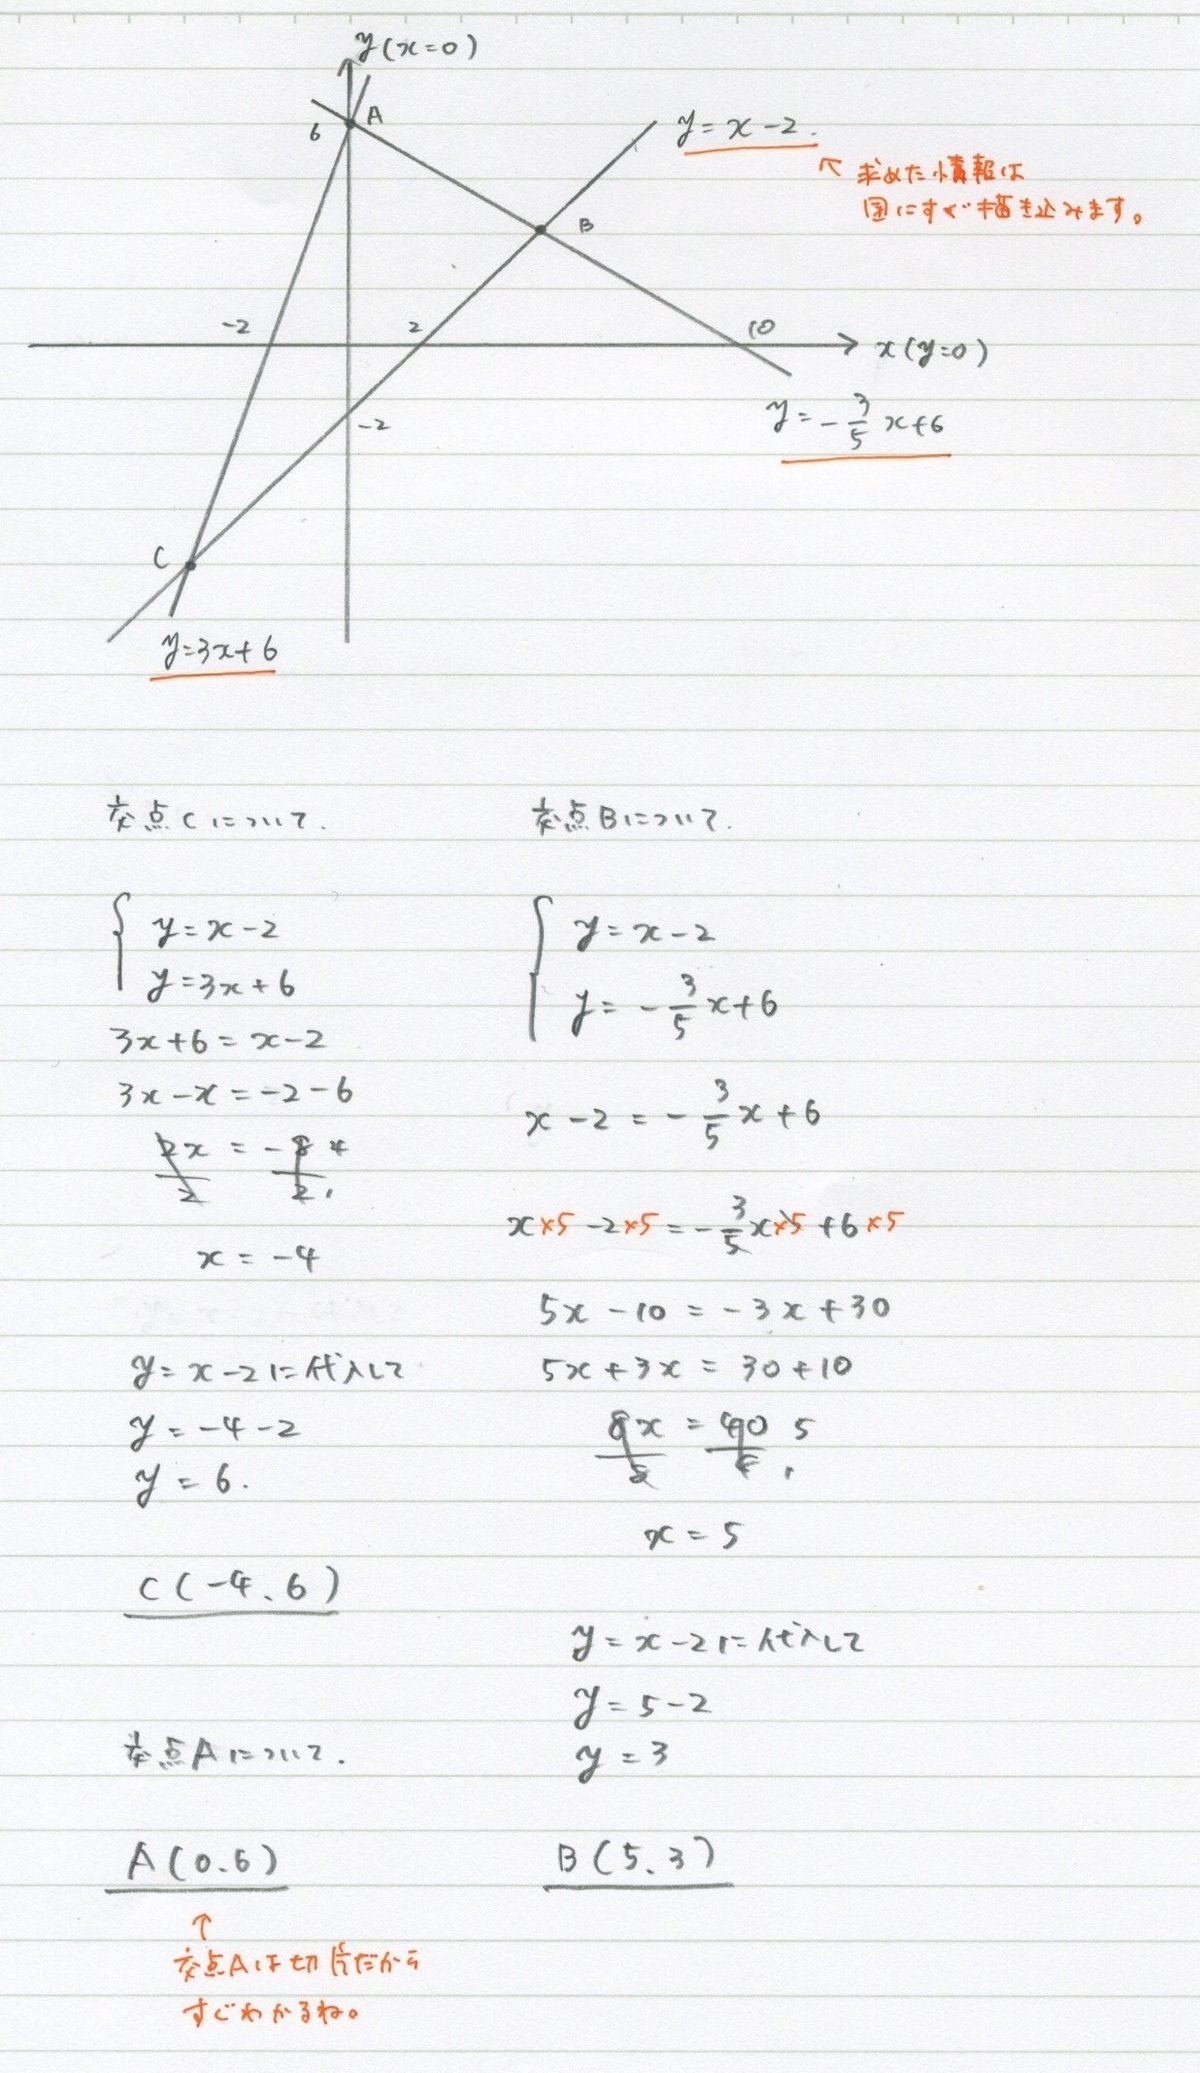 y(x=0)
A
6
y=x-2.
↖ 求めた情報は
図にすぐ描き込みます。
B
-2
2
10
x(y=0)
-2
y=-3/5x+6
C
y=3x+6
交点Cについて.
y=x-2
y=3x+6
3x+6=x-2
3x-x=-2-6
2x/2=-8/2 4 1
x=-4
y=x-2に代入して
y=-4-2
y=6.
C(-4、6)
交点Aについて.
A(0.6)
↑
交点Aは切片だから
すぐわかるね。
交点Bについて.
y=x-2
y=-3/5x+6
x-2=-3/5x+6
x×5-2×5=-3/5x×5+6×5
5x-10=-3x+30
5x+3x=30+10
8x/8=40/8 5 1
x=5
y=x-2に代入して
y=5-2
y=3
B(5、3)